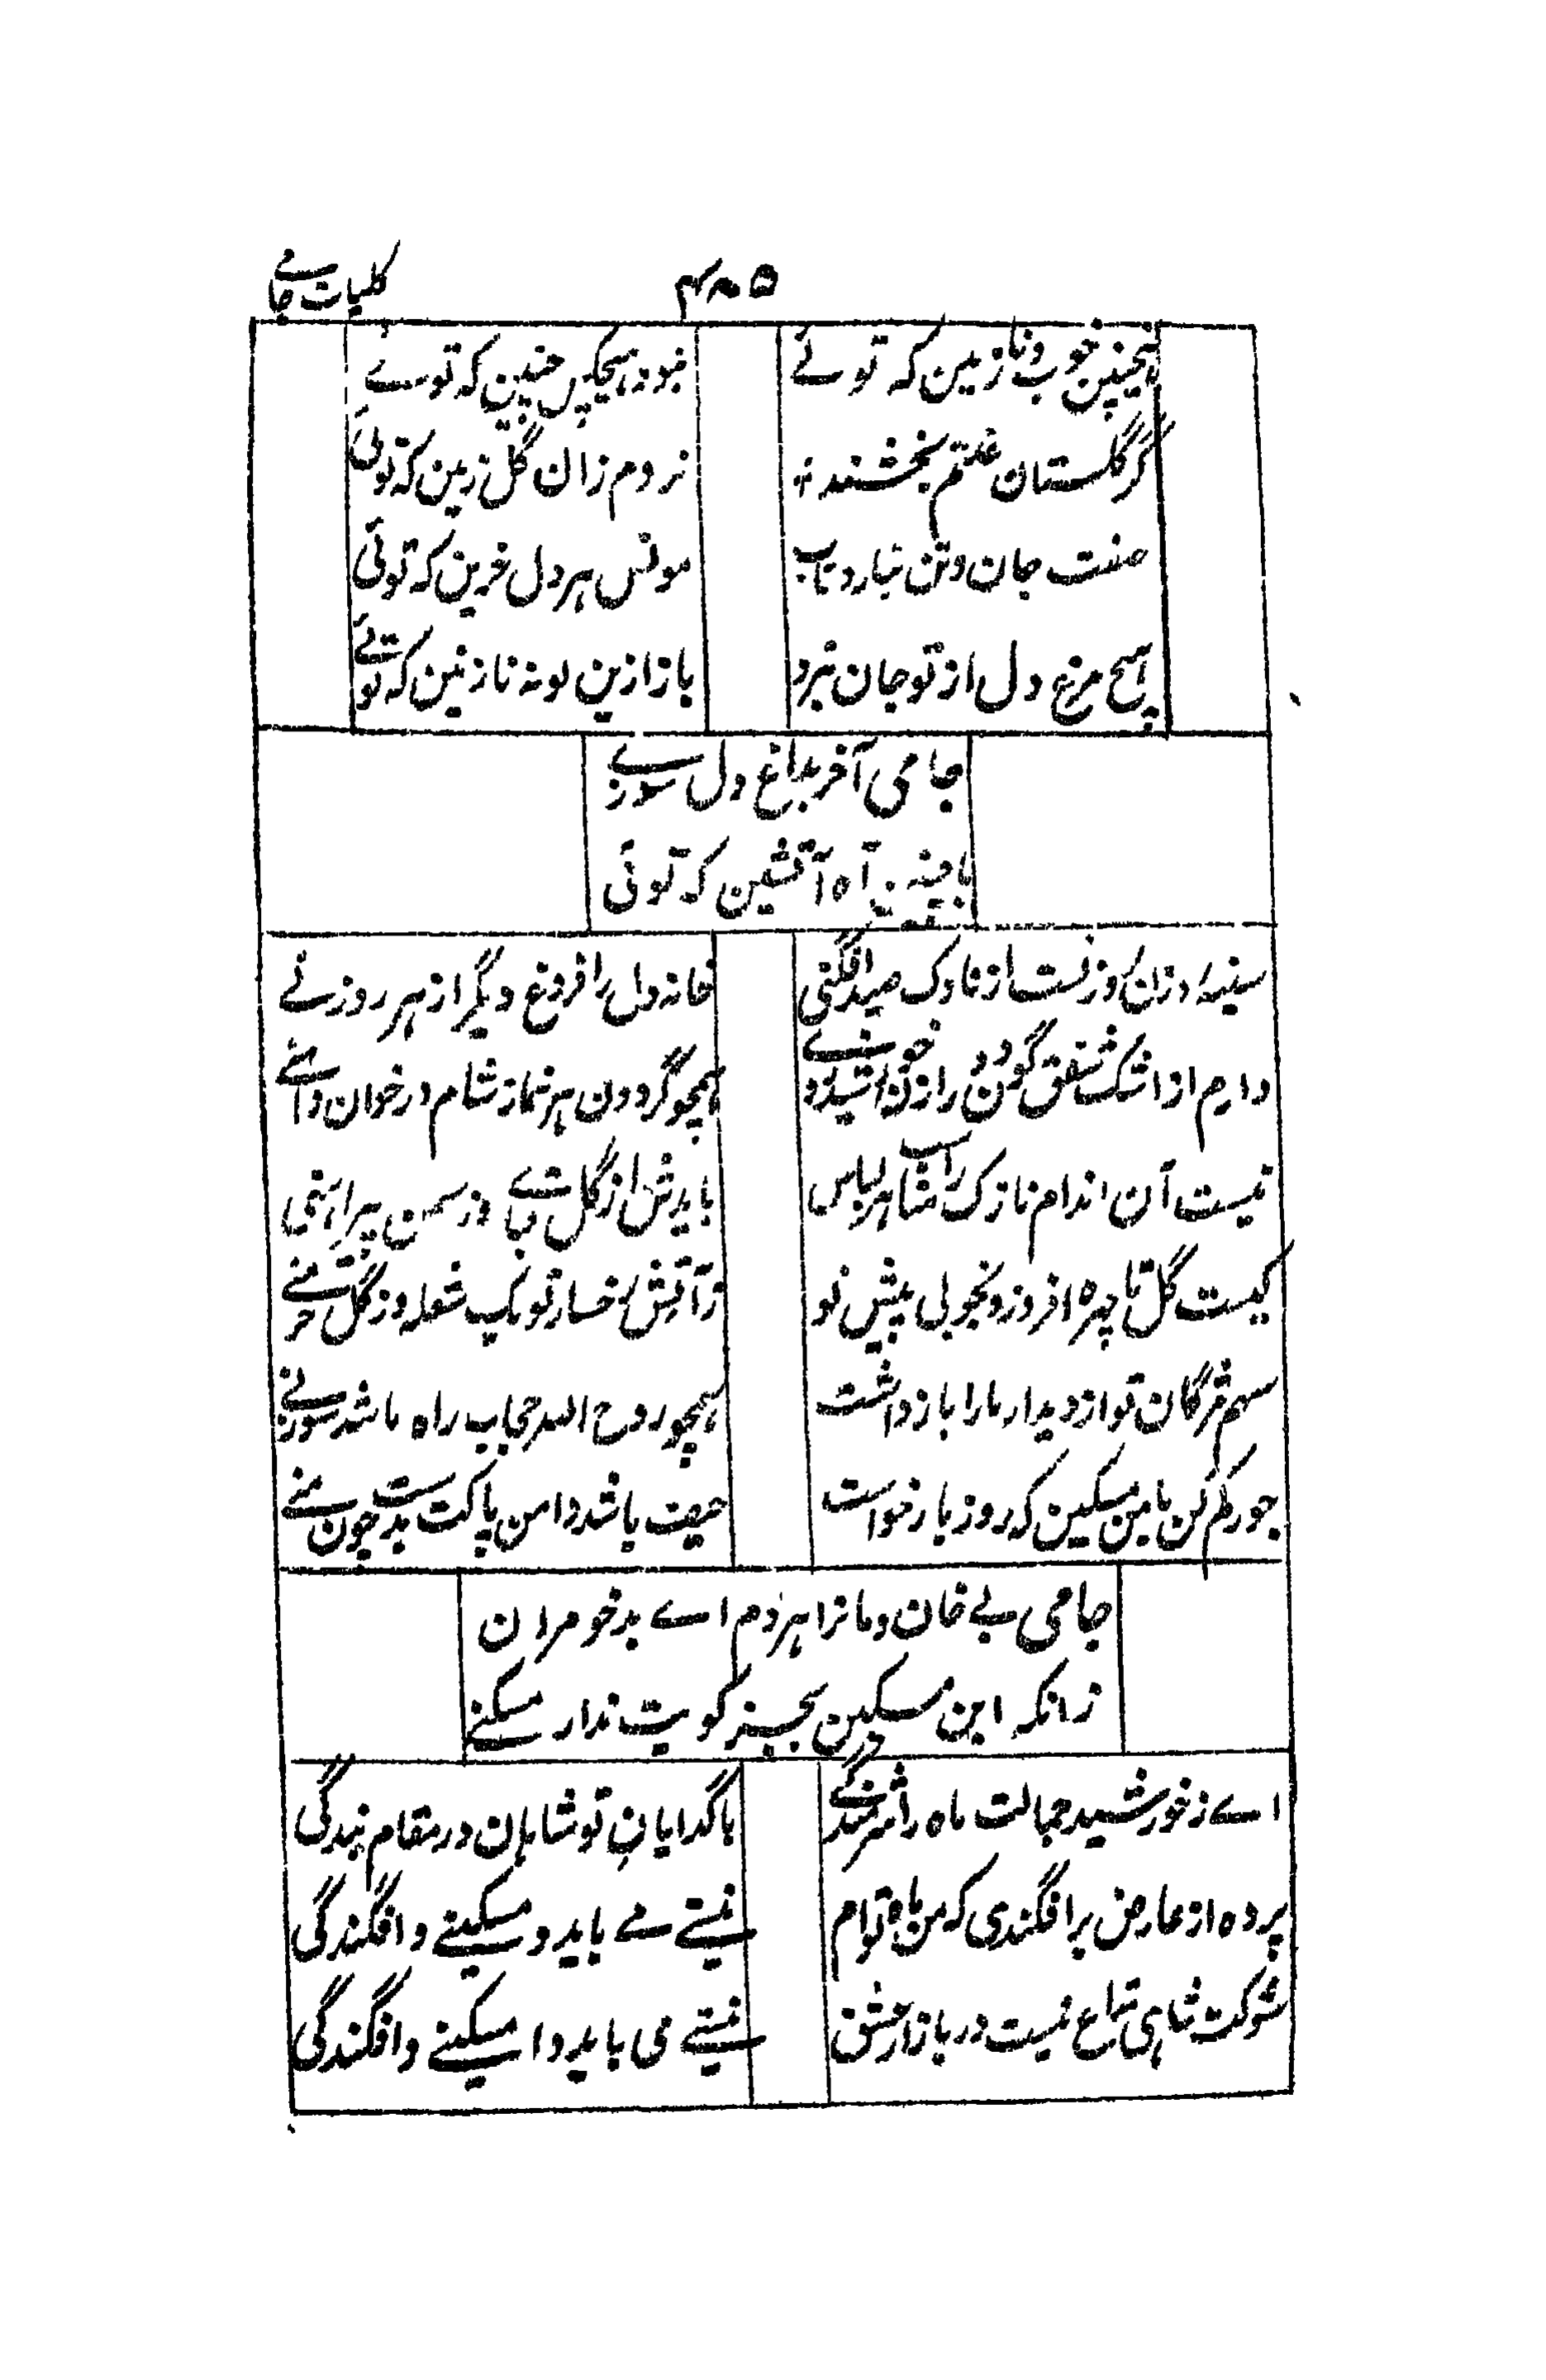 کلیات جامی
۴۸۵
همچنین خوب و نازنین که توئے
نبود هیچکس چنین که توئے
گر گلستان خلدم بخشند
نروم زان گل زمین که توئی
صفت جان و تن نیارد تاب
مونس هر دل حزین که توئی
هیچ مرغ دل از تو جان نبرد
باز ازین گونه نازنین که توئے
جامی آخر بداغ دل سوزے
با چنین آه آتشین که توئی
سینه روزن روزنست از ناوک صید افگنی
خانه دل را فروغ دیگر از هر روزنے
دارم از اشک شفق گون دور ازان خورشید رو
همچو گردون هر نماز شام در خون دامنے
نیست آن اندام نازک را مناسب هر لباس
بایدش از گل قبائے وز سمن پیراهنی
کیست گل تا چهره افروزد بخوبی پیش تو
ز آتش رخسار تو یک شعله وز گل خرمنے
سهم مژگان تو از دیدار ما را باز داشت
همچو روح الله حجاب راه ما شد سوزنے
جور کم کن با من مسکین که روز بازخواست
حیف باشد دامن پاکت بدست چون منے
جامی بے خان و مان را هر دم اے بدخو مران
زانکه این مسکین بجز کویت ندارد مسکنے
اے ز خورشید جمالت ماه را شرمندگے
با گدایان تو شاهان در مقام بندگی
پرده از عارض برافگندی که من ماه توام
نیستے مے باید و مسکینے و افگندگی
شوکت شاهی متاع نیست در بازار عشق
نیستے می باید و مسکینے و افگندگی